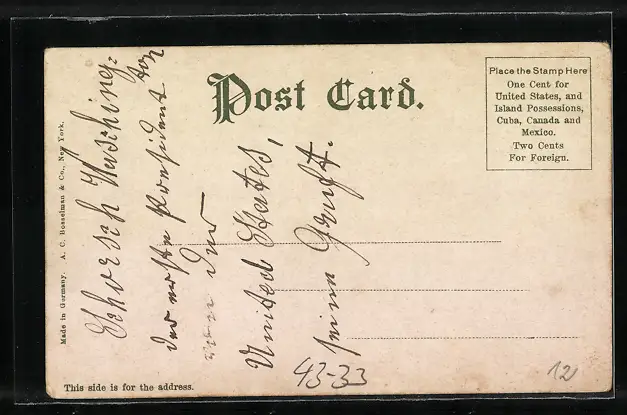 Post Card.
Place the Stamp Here
One Cent for
United States, and
Island Possessions,
Cuba, Canada and
Mexico.
Two Cents
For Foreign.
Made in Germany. A. C. Bosselman & Co., New York.
Schorsch Wasching-
ton
der erste President
von der
United States,
seine Gruft.
43-33
12
This side is for the address.